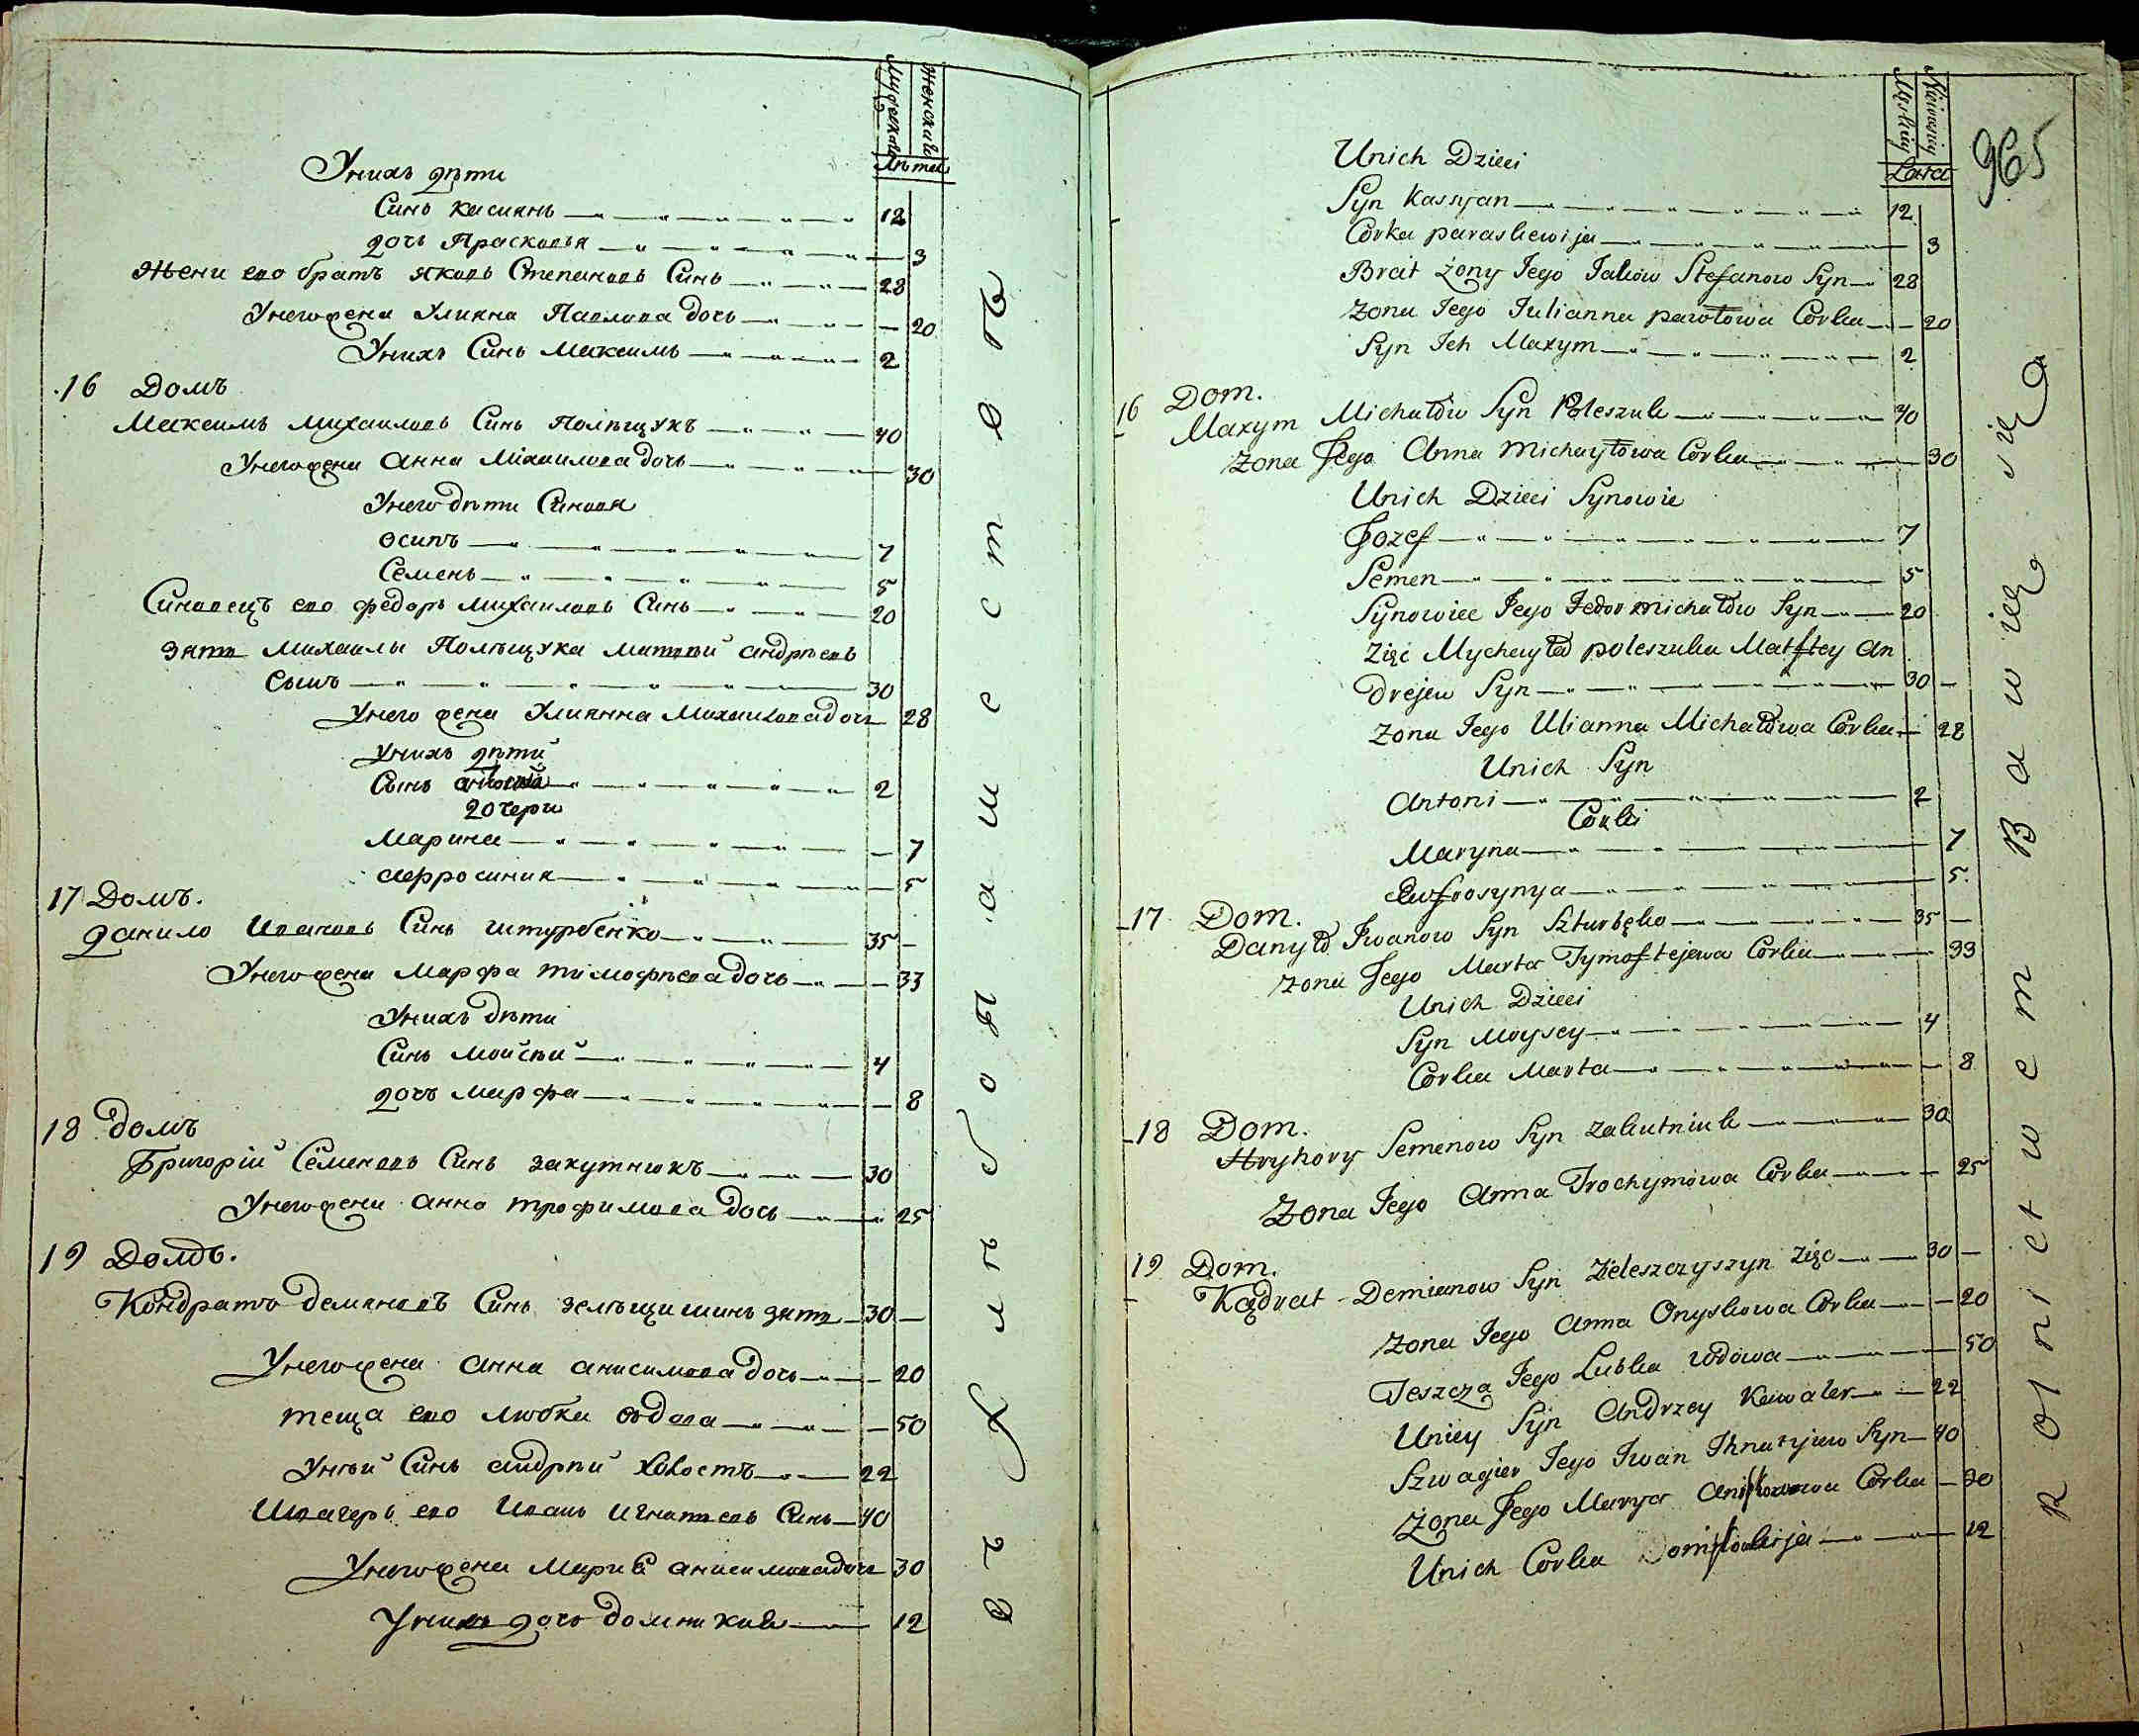 Мужеска
Женскай
Лѣта
Унихъ дѣти
Синъ Касиянъ 12
дочъ Прасковья 3
Жени его братъ Яковъ Степановъ Синъ 28
Унегожена Улияна Павлова дочъ 20
Унихъ Синъ Максимъ 2
16 Домъ
Максимъ Михаиловъ Синъ Полѣщукъ 40
Унегожена Анна Міхаилова дочъ 30
Унего дѣти Синовя
Осипъ 7
Семенъ 5
Синовецъ его федоръ Михаиловъ Синъ 20
зять Михаилы Полѣщука Матвѣй андрѣевъ
Сынъ 30
Унего жена Улиянна Михаиловадочь 28
Унихъ дѣти
Сынъ 2
дочери
Марина 7
5
17 Домъ.
Данило Ивановъ Синъ Штурбенко 35
Унегожена Марфа тимофѣева дочъ 33
Унихъ дѣти
Синъ Мойсѣй 4
дочъ Марфа 8
18 домъ
Григорій Сѐменовъ Синъ закутнюкъ 30
Унегожена анна трофимова дочь 25
19 Домъ.
Кондратъ демяновъ Синъ зелѣщишинъ зять 30
Унегожена анна анисимова дочъ 20
теща его Любка вдова 50
Унѣй Синъ андрѣй холостъ 22
Швагеръ его Иванъ Игнатевъ Синъ 40
Унегожена Мария анисимовадочь 30
Унихъ дочъ домникия 12
хлѣбопашествомъ
Męskiy
Latα
965
Unich Dzieci
Syn Kassyan 12
Corka paraskewija 3
Brat żony Jego Jakow Stefanow Syn 28
Zona Jego Julianna pawłowa Corka 20
Syn Jch Maxym 2
16 Dom.
Maxym Michałow Syn Poleszuk 40
Zona Jego Anna Michayłowa Corka 30
Unich Dzieci Synowie
Jozef 7
Semen 5
Synowiec Jego Fedor Michałow Syn 20
Zięć Mychayła poleszuka Matftey An
drejew Syn 30
Zona Jego Ulianna Michałowa Corka 28
Unich Syn
Antoni 2
Corki
Maryna 7
Ewfrosynya 5
17 Dom.
Danyło Jwanow Syn Szturbęko 35
Zona Jego Marta Tymoftejewa Corka 33
Unich Dzieci
Syn Moysey 4
Corka Marta 8
18 Dom.
Hryhory Semenow Syn Zakutniuk 30
Zona Jego Anna Trochymowa Corka 25
19 Dom.
Kądrat Demianow Syn Zieleszczyszyn Zięc 30
Zona Jego Anna Onyskowa Corka 20
Teszcza Jego Lubka Wdowa 50
Uniey Syn Andrzey Kawaler 22
Szwagier Jego Jwan Jhnatyjew Syn 40
Zona Jego Marya Corka 30
Unich Corka 12
Rolnictwem Bawię się